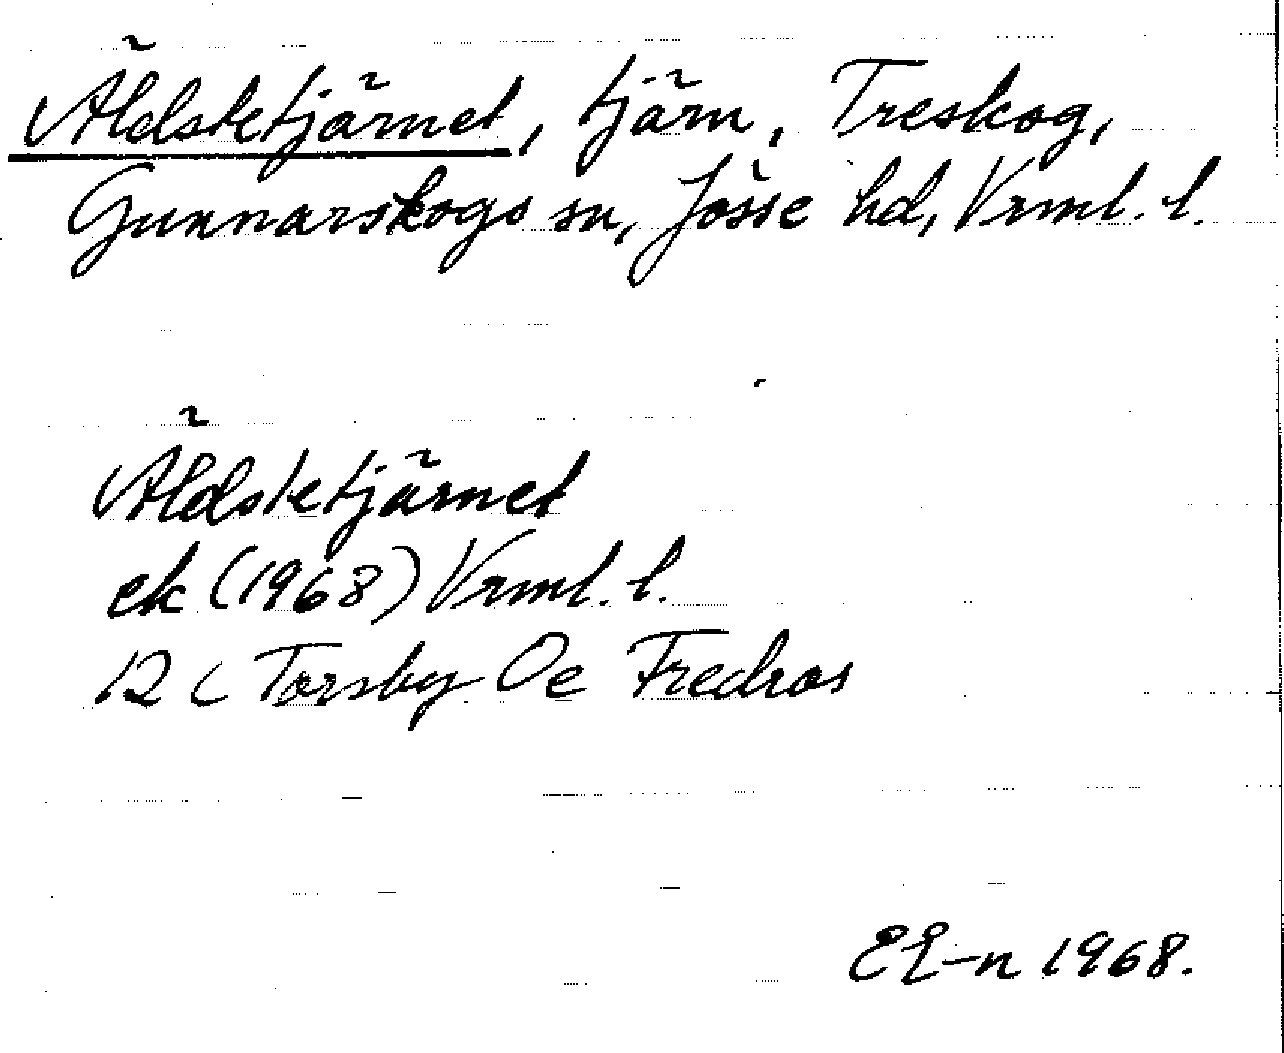 Äldstetjärnet, tjärn, Treskog,
Gunnarskogs sn, Jösse hd, Vrml. l.
Äldstetjärnet
ek (1968) Vrml. l.
12 C Torsby Oe Fredros
EE-n 1968.